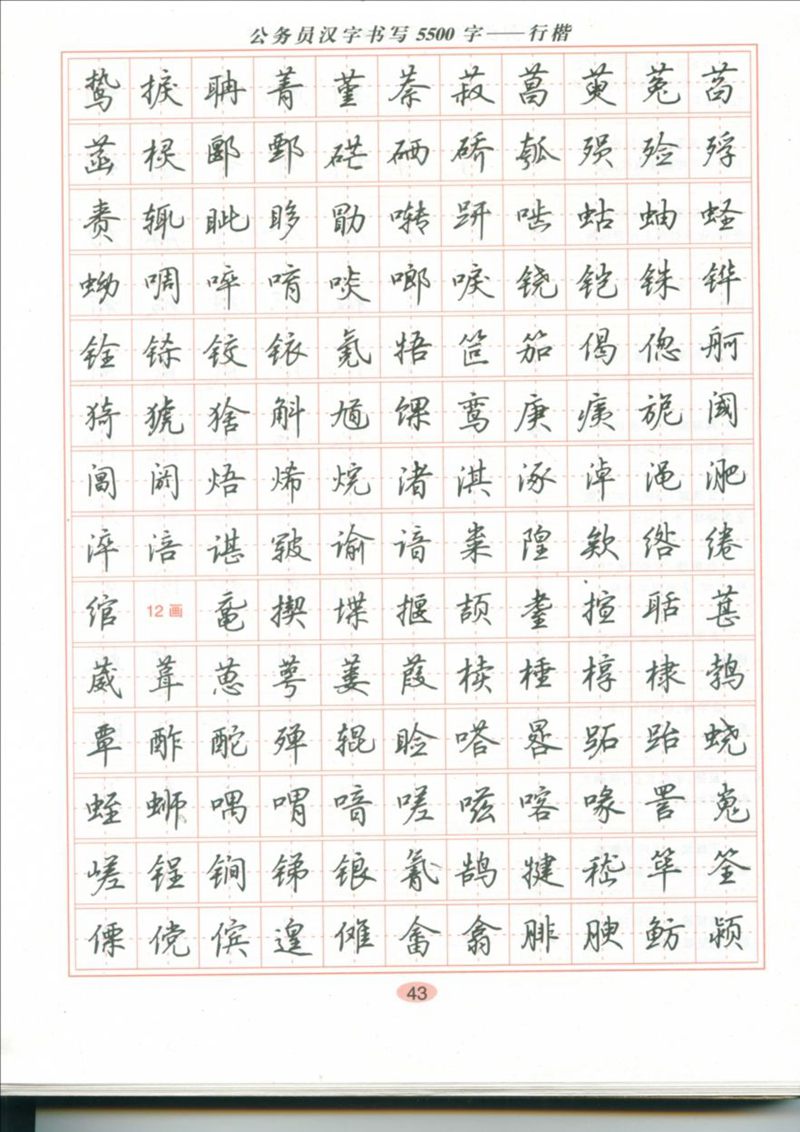 公务员汉字书写 5500 字——行楷
鸷 捩 聃 菁 堇 萘 菽 菖 萸 菟 萏
菡 棂 郾 鄄 硭 硒 硚 瓠 殒 殓 殍
赉 辄 眦 眵 勖 啭 趼 啮 蛄 蚰 蛏
蚴 啁 啐 唷 啖 啷 唳 铙 铠 铢 铧
铨 铩 铰 铱 氪 牾 笸 笳 偈 偬 舸
猗 猇 猞 斛 馗 馃 鸾 庾 痍 旎 阈
阊 阏 焐 烯 烷 渚 淇 涿 淖 渑 淝
淬 涪 谌 皲 谕 谙 粜 隍 欸 绺 绻
绾 12画 鼋 揳 堞 揠 颉 耋 揎 聒 葚
葳 葺 葸 萼 蒌 葭 椟 棰 椁 棣 鹁
覃 酢 酡 殚 辊 睑 嗒 晷 跖 跆 蛲
蛭 蛳 喁 喟 喑 嗟 嗞 喀 喙 詈 嵬
嵯 锃 锏 锑 锒 氰 鹄 犍 嵇 筚 筌
傈 傥 傧 遑 傩 畲 翕 腓 腴 鲂 颍
43